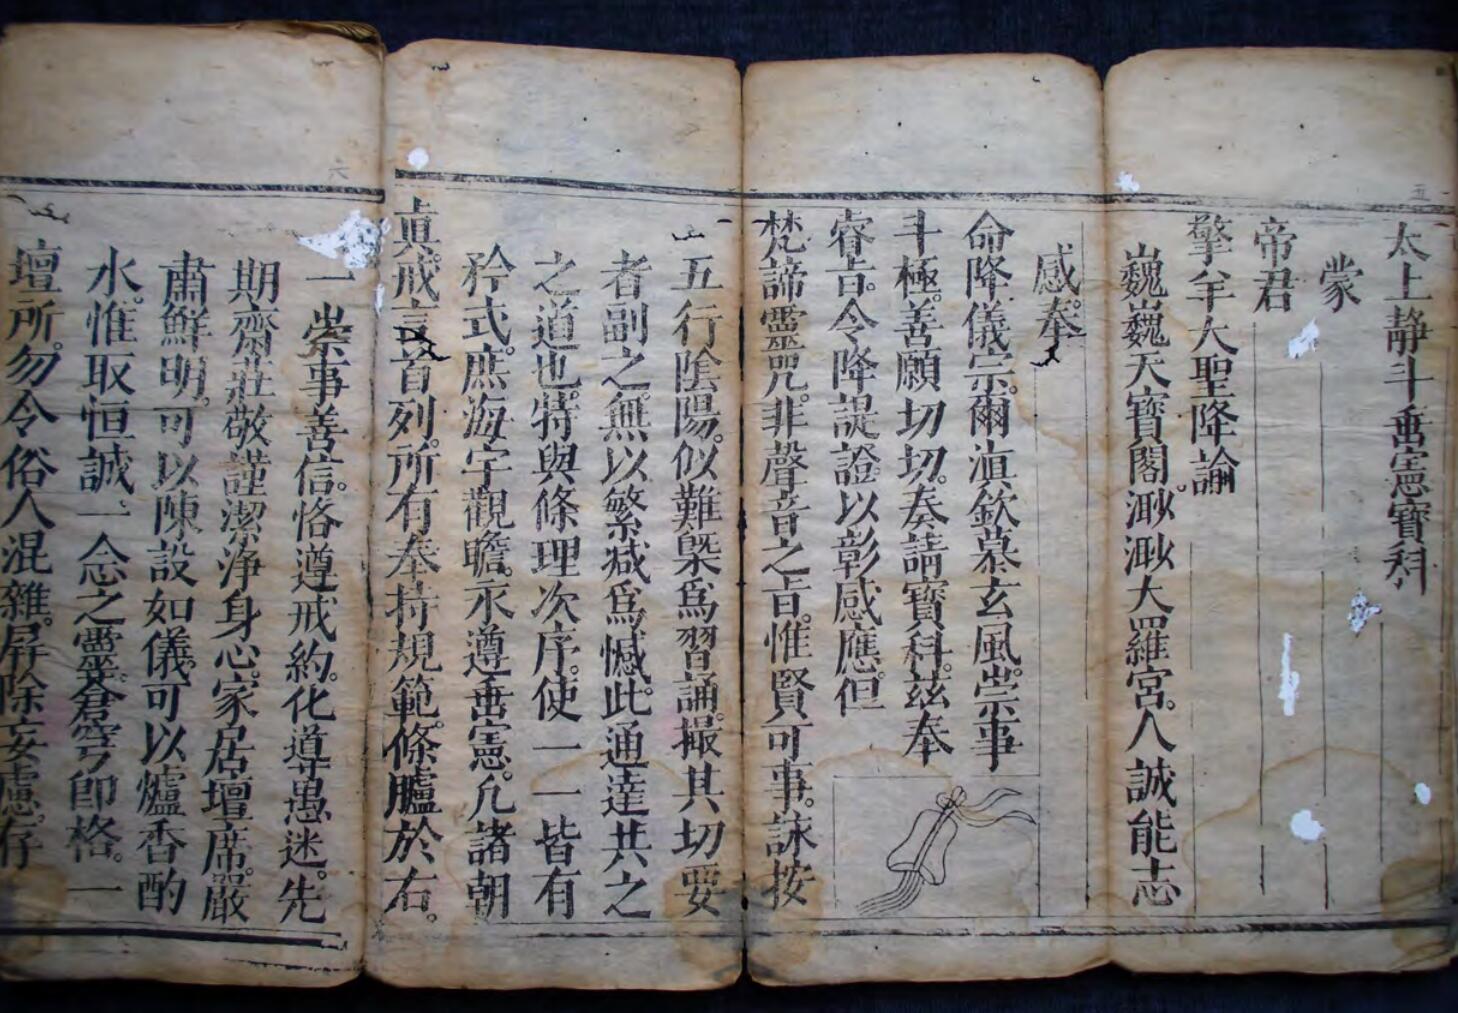 太上靜斗垂憲寶科
蒙
帝君
擎羊大聖降諭
巍巍天寶閣。渺渺大羅宮。人誠能志
感。奉
命降儀宗。爾滇欽慕玄風。崇事
斗極。善願切切。奏請寶科。茲奉
睿旨。令降諟證以彰感應。但
梵諦靈咒。非聲音之旨。惟賢可事。誄按
五行陰陽。似難槩爲習誦。撮其切要
者副之。無以繁減爲憾。此通達共之
之道也。特與條理次序。使一一皆有
矜式。庶海宇觀瞻。永遵垂憲。凡諸朝
真。戒言首列。所有奉持規範。條臚於右。
一崇事善信。恪遵戒約。化導愚迷。先
期齋莊敬謹潔淨身心。家居壇席。嚴
肅鮮明。可以陳設如儀。可以爐香酌
水。惟取恒誠。一念之靈。蒼穹卽格。一
壇所。勿令俗人混雜。屏除妄慮。存
五
六